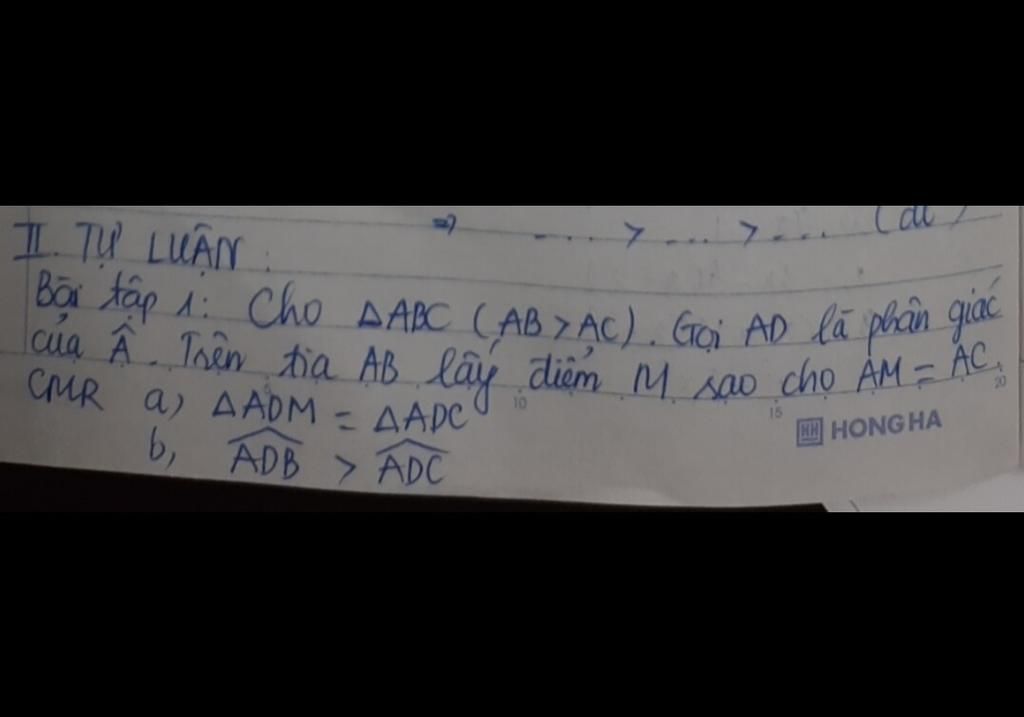 ⇒ .... > .... > .... (đl)
II. TỰ LUẬN :
Bài tập 1: Cho ΔABC (AB > AC). Gọi AD là phân giác
của Â. Trên tia AB lấy điểm M sao cho AM = AC.
CMR a) ΔADM = ΔADC
10 15 20
HONG HA
b, \widehat{ADB} > \widehat{ADC}